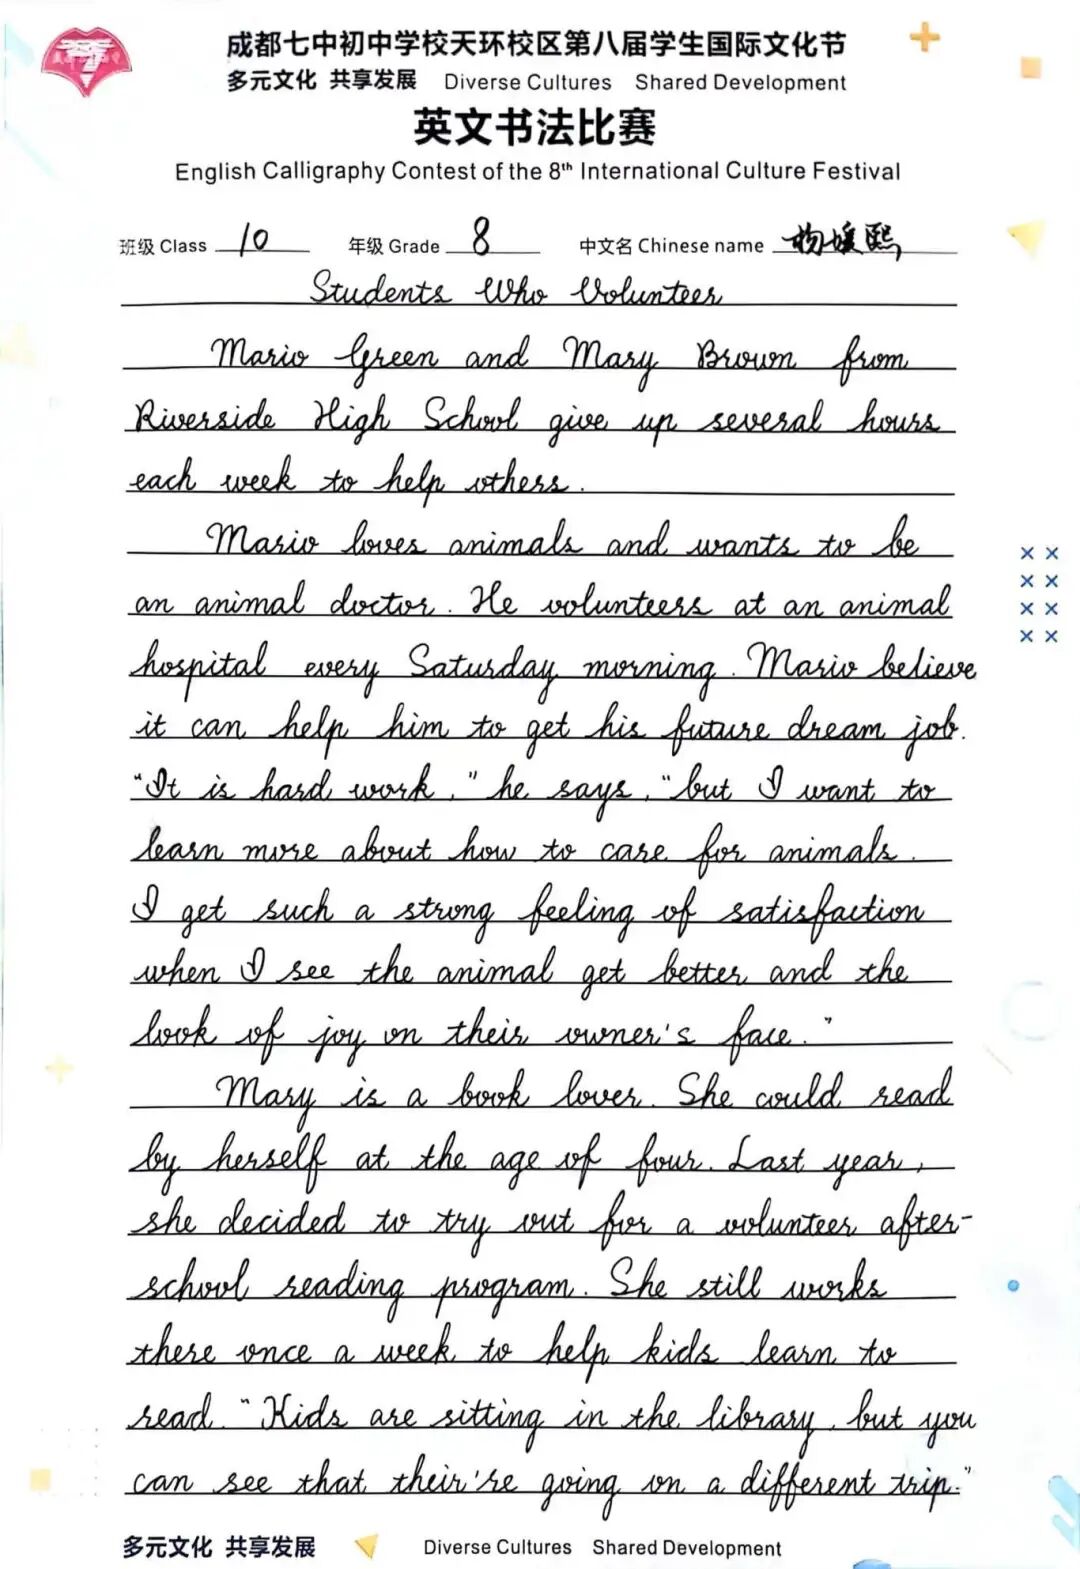 成都七中初中学校天环校区第八届学生国际文化节
多元文化 共享发展 Diverse Cultures Shared Development
英文书法比赛
English Calligraphy Contest of the 8th International Culture Festival
班级 Class 10 年级 Grade 8 中文名 Chinese name 杨媛熙
Students Who Volunteer
Mario Green and Mary Brown from
Riverside High School give up several hours
each week to help others.
Mario loves animals and wants to be
an animal doctor. He volunteers at an animal
hospital every Saturday morning. Mario believe
it can help him to get his future dream job.
"It is hard work," he says, "but I want to
learn more about how to care for animals.
I get such a strong feeling of satisfaction
when I see the animal get better and the
look of joy on their owner's face."
Mary is a book lover. She could read
by herself at the age of four. Last year,
she decided to try out for a volunteer after-
school reading program. She still works
there once a week to help kids learn to
read. "Kids are sitting in the library, but you
can see that their're going on a different trip."
多元文化 共享发展 Diverse Cultures Shared Development